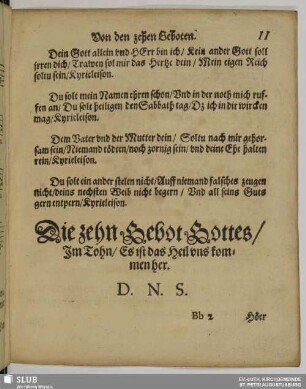 Von den zehen Geboten. 11
Dein Gott allein vnd HErr bin ich / Kein ander Gott soll
jrren dich / Trawen sol mir das Hertze dein / Mein eigen Reich
soltu sein / Kyrieleison.
Du solt mein Namen ehren schon / Vnd in der noth mich ruf-
fen an / Du solt heiligen den Sabbath tag / Dz ich in dir wircken
mag / Kyrieleison.
Dem Vater vnd der Mutter dein / Soltu nach mir gehor-
sam sein / Niemand tödten / noch zornig sein / vnd deine Ehe halten
rein / Kyrieleison.
Du solt ein ander stelen nicht / Auff niemand falsches zeugen
nicht / deins nechsten Weib nicht begern / Vnd all seins Guts
gern entpern / Kyrieleison.
Die zehn Gebot Gottes /
Im Tohn / Es ist das Heil vns kom-
men her.
D. N. S.
Bb 2 Höer
SLUB
Wir führen Wissen.
EV.-LUTH. KIRCHGEMEINDE
ST. PETRI AUGUSTUSBURG